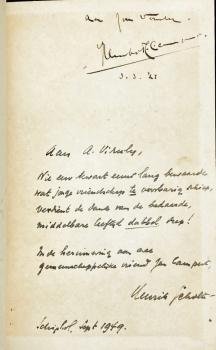 aan Jan
3.3.'41
Aan A. Viruly,
Wie een kwart eeuw lang bewaarde
wat jonge vriendschap te
verdient de dank van de bedaarde,
middelbare leeftijd dubbel
In de herinnering aan onze
gemeenschappelijke vriend Jan Campert,
Henrik Scholte
Schiphol, Sept 1949.